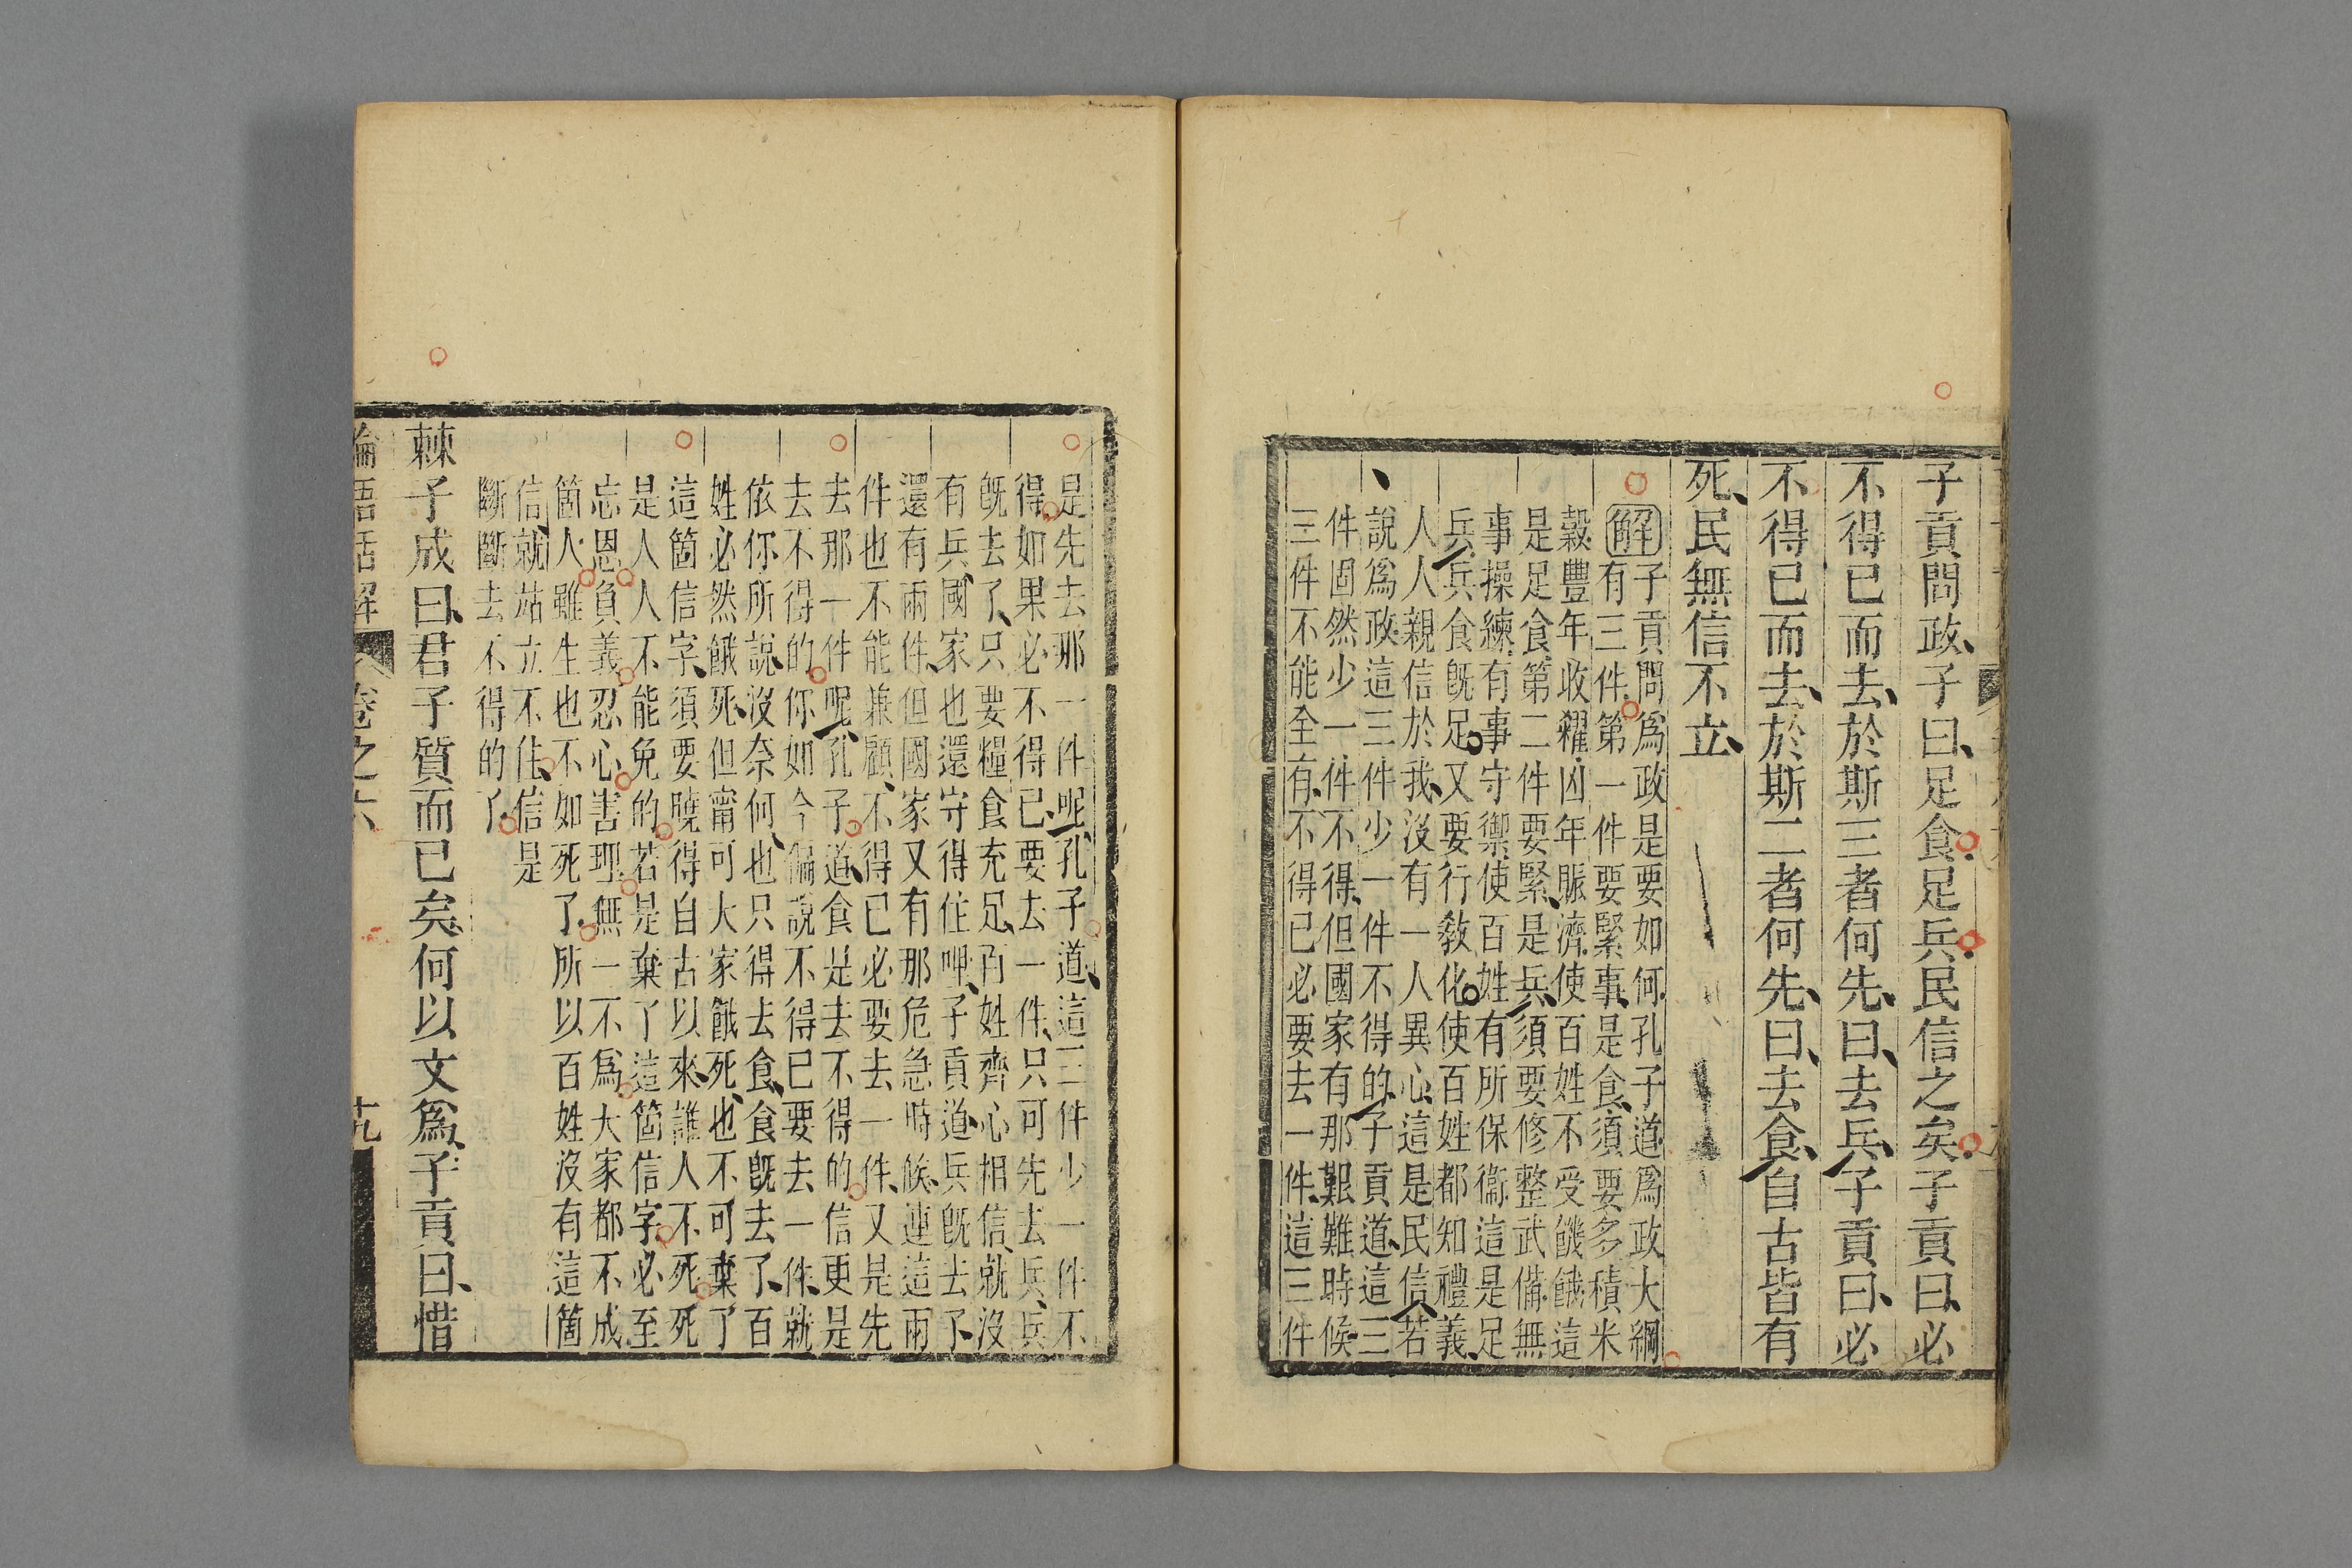 子貢問政、子曰、足食足兵民信之矣子貢曰、必
不得已而去、於斯三者何先、曰、去兵、子貢曰、必
不得已而去、於斯二者何先、曰、去食、自古皆有
死、民無信不立、
解子貢問爲政是要如何孔子道爲政大綱
有三件第一件要緊事是食、須要多積米
穀豐年收糴凶年賑濟使百姓不受饑餓這
是足食第二件要緊、是兵、須要修整武備無
事操練有事守禦使百姓有所保衞這是足
兵、兵食旣足又要行敎化使百姓都知禮義、
人人親信於我、沒有一人異心這是民信若
說爲政這三件少一件不得的子貢道、這三
件固然少一件不得、但國家有那艱難時候
三件不能全有、不得已必要去一件、這三件
是先去那一件呢孔子道、這三件少一件不
得、如果必不得已、要去一件、只可先去兵、兵
旣去了、只要糧食充足、百姓齊心相信、就沒
有兵、國家也還守得住哩、子貢道、兵旣去了、
還有兩件、但國家又有那危急時候、連這兩
件也不能兼顧、不得已必要去一件、又是先
去那一件呢、孔子道、食是去不得的信更是
去不得的、你如今偏說不得已要去一件、就
依你所說、沒奈何、也只得去食、食旣去了、百
姓必然餓死、但甯可大家餓死、也不可棄了
這箇信字、須要曉得自古以來、誰人不死死
是人人不能免的若是棄了這箇信字必至
忘恩負義忍心害理無一不爲大家都不成
箇人雖生也不如死了所以百姓沒有這箇
信、就站立不住、信是
斷斷去不得的了
棘子成曰、君子質而已矣、何以文爲、子貢曰、惜
論語話解 卷之六 十九